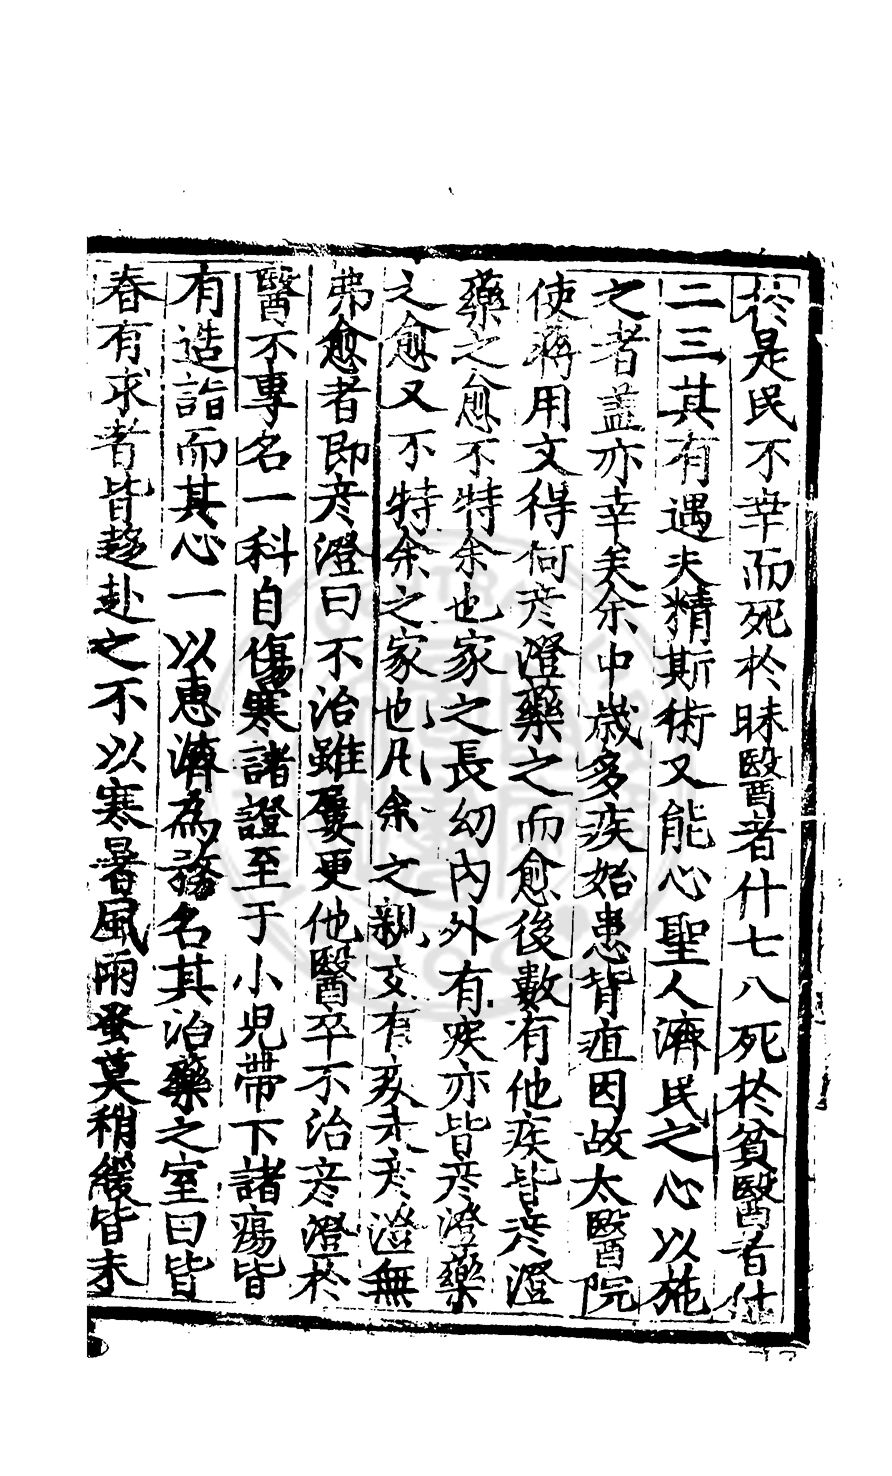 於是民不幸而死於昧醫者什七八死於貧醫者什
二三其有遇夫精斯術又能心聖人濟民之心以施
之者蓋亦幸矣余中歲多疾始患背疽因故太醫院
使蔣用文得何彦澄藥之而愈後數有他疾皆彦澄
藥之愈不特余也家之長幼內外有疾亦皆彦澄藥
之愈又不特余之家也凡余之親交有疾求彦澄無
弗愈者即彦澄曰不治雖屢更他醫卒不治彦澄於
醫不專名一科自傷寒諸證至于小兒帶下諸瘍皆
有造詣而其心一以惠濟為務名其治藥之室曰皆
春有求者皆趍赴之不以寒暑風雨蚤莫稍緩皆未